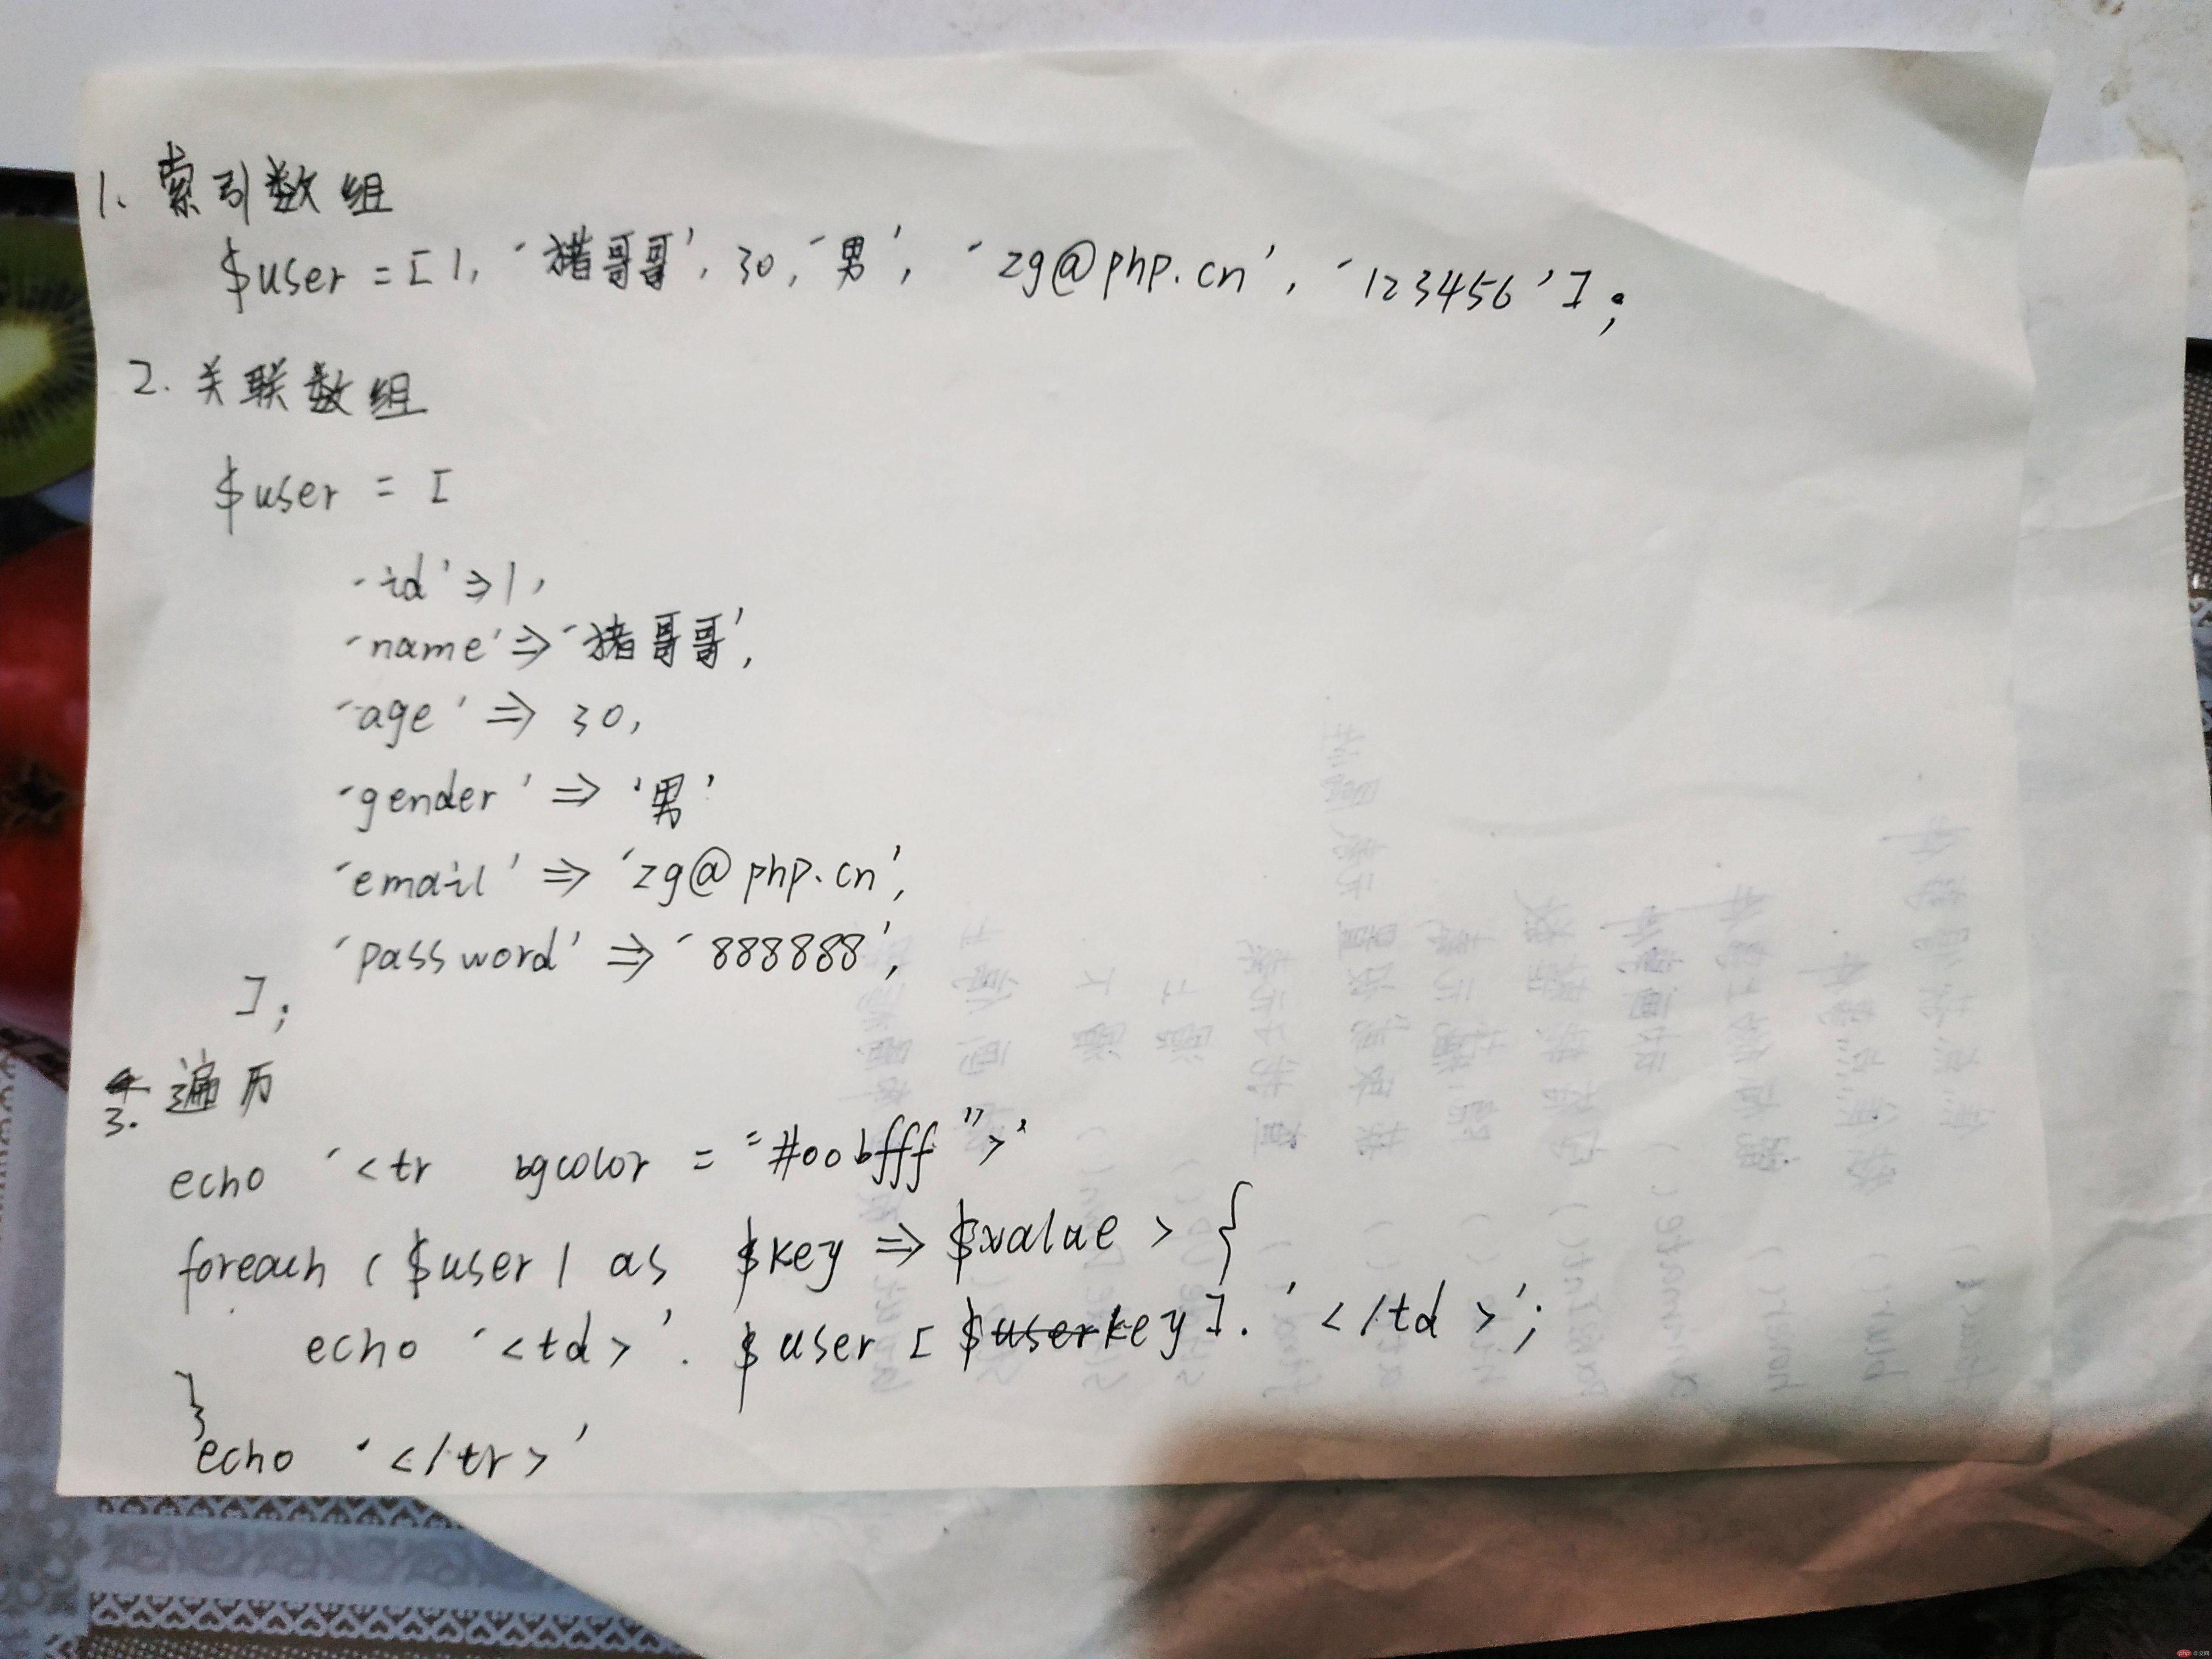 1. 索引数组
$user = [1, '猪哥哥', 30, '男', 'zg@php.cn', '123456'];
2. 关联数组
$user = [
'id' => 1,
'name' => '猪哥哥',
'age' => 30,
'gender' => '男'
'email' => 'zg@php.cn',
'password' => '888888',
];
3. 遍历
echo '<tr bgcolor = "#00bfff">'
foreach ($user) as $key => $value > {
echo '<td>'. $user [$key]. '</td>';
}
echo '</tr>'